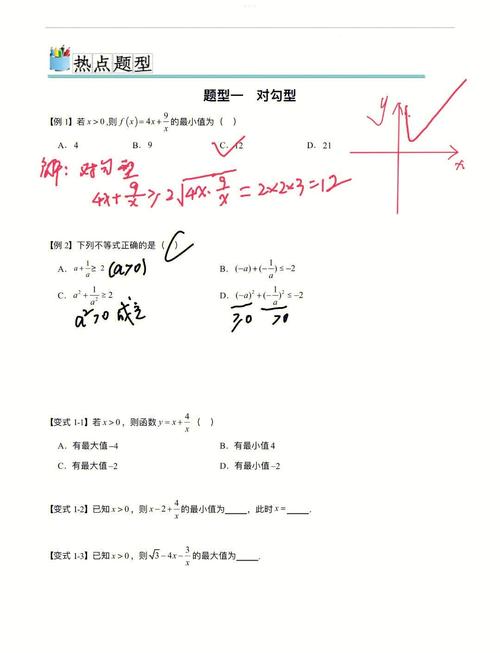 热点题型
题型一 对勾型
【例 1】若 x > 0 ,则 f (x) = 4x + 9/x 的最小值为（ ）
A．4 B．9 C．12 D．21
y
x
解：对勾型
4x + 9/x ≥ 2√(4x·9/x) = 2×2×3 = 12
【例 2】下列不等式正确的是（ C ）
A．a + 1/a ≥ 2 (a>0) B．(−a) + (−1/a) ≤ −2
C．a² + 1/a² ≥ 2 D．(−a)² + (−1/a)² ≤ −2
a²>0 成立 ≥0 >0
【变式 1-1】若 x > 0 ，则函数 y = x + 4/x （ ）
A．有最大值 −4 B．有最小值 4
C．有最大值 −2 D．有最小值 −2
【变式 1-2】已知 x > 0 ，则 x − 2 + 4/x 的最小值为____，此时 x = ____.
【变式 1-3】已知 x > 0 ，则 √3 − 4x − 3/x 的最大值为____.